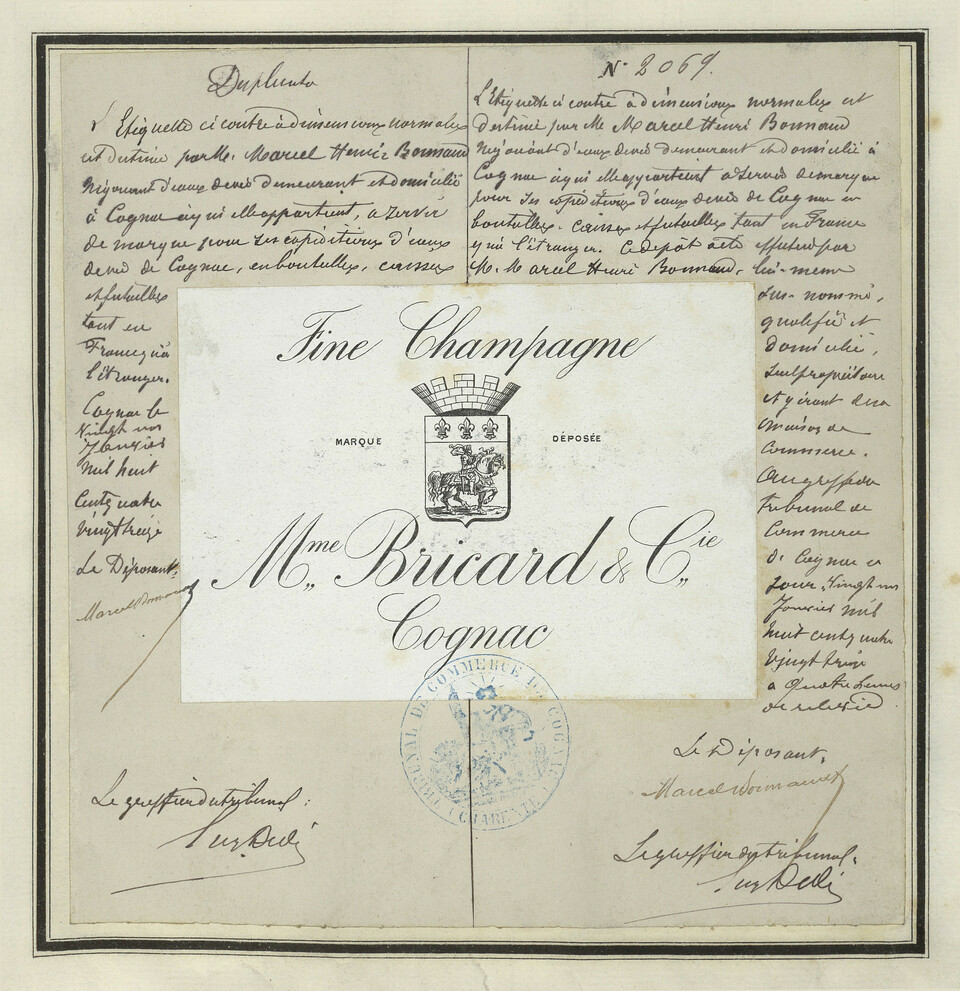 Duplicata
L'Etiquette ci contre à dimensions normales
est destinée par M. Marcel Henri Bonnaud
Négociant d'eaux de vie demeurant et domicilié
à Cognac à qui elle appartient, à servir
de marque pour ses expéditions d'eaux
de vie de Cognac, en bouteilles, caisses
et futailles
tant en
France qu'à
l'étranger.
Cognac le
vingt
Janvier
mil huit
cent quatre
vingt treize
Le Déposant,
Marcel Bonnaud
Le greffier du tribunal:
N° 2069.
L'Etiquette ci contre à dimensions normales est
destinée par Mr Marcel Henri Bonnaud
Négociant d'eaux de vie demeurant et domicilié à
Cognac à qui elle appartient à servir de marque
pour ses expéditions d'eaux de vie de Cognac en
bouteilles, caisses et futailles tant en France
qu'à l'étranger. Ce dépôt a été effectué par
M. Marcel Henri Bonnaud, lui-même
sus-nommé,
qualifié et
domicilié,
seul propriétaire
et gérant de sa
maison de
commerce.
Au greffe du
tribunal de
Commerce
de Cognac ce
jour, vingt
Janvier mil
huit cent quatre
vingt treize
à quatre heures
de relevée.
Le Déposant,
Marcel Bonnaud
Le greffier du tribunal.
Fine Champagne
MARQUE DÉPOSÉE
Mme Bricard & Cie
Cognac
TRIBUNAL DE COMMERCE DE COGNAC
(CHARENTE)